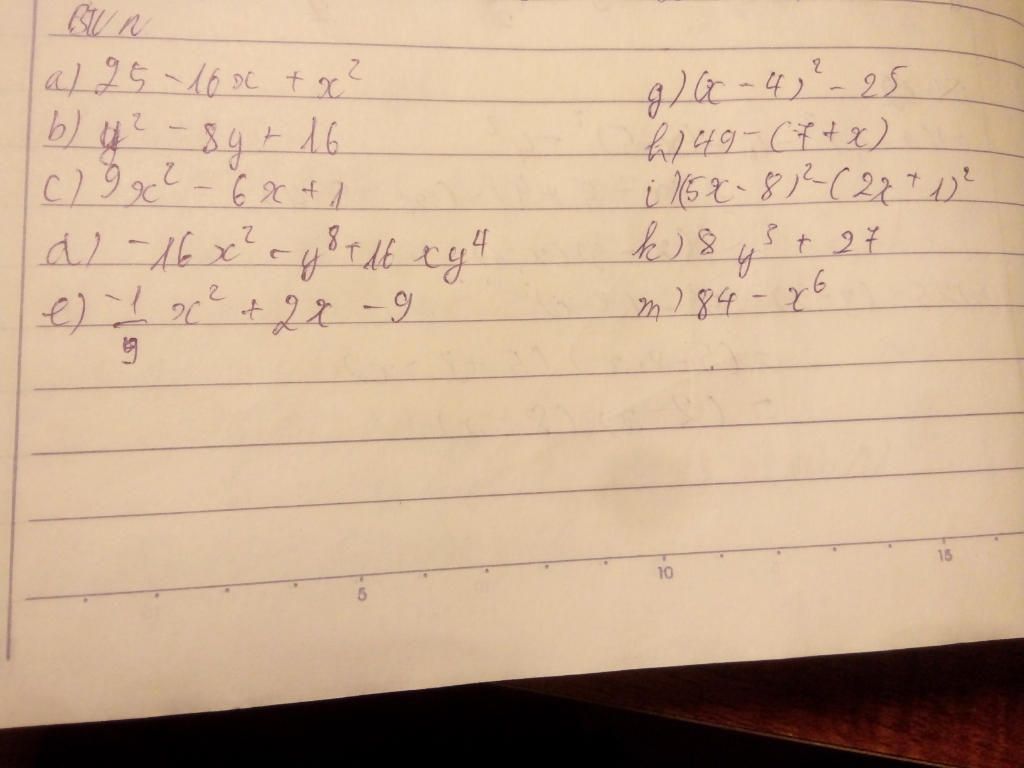 BTVN
a) 25 - 16x + x²
b) y² - 8y + 16
c) 9x² - 6x + 1
d) -16x² - y⁸ + 16xy⁴
e) -1/9 x² + 2x - 9
g) (x - 4)² - 25
h) 49 - (7 + x)
i) (5x - 8)² - (2x + 1)²
k) 8y³ + 27
m) 84 - x⁶
5 10 15